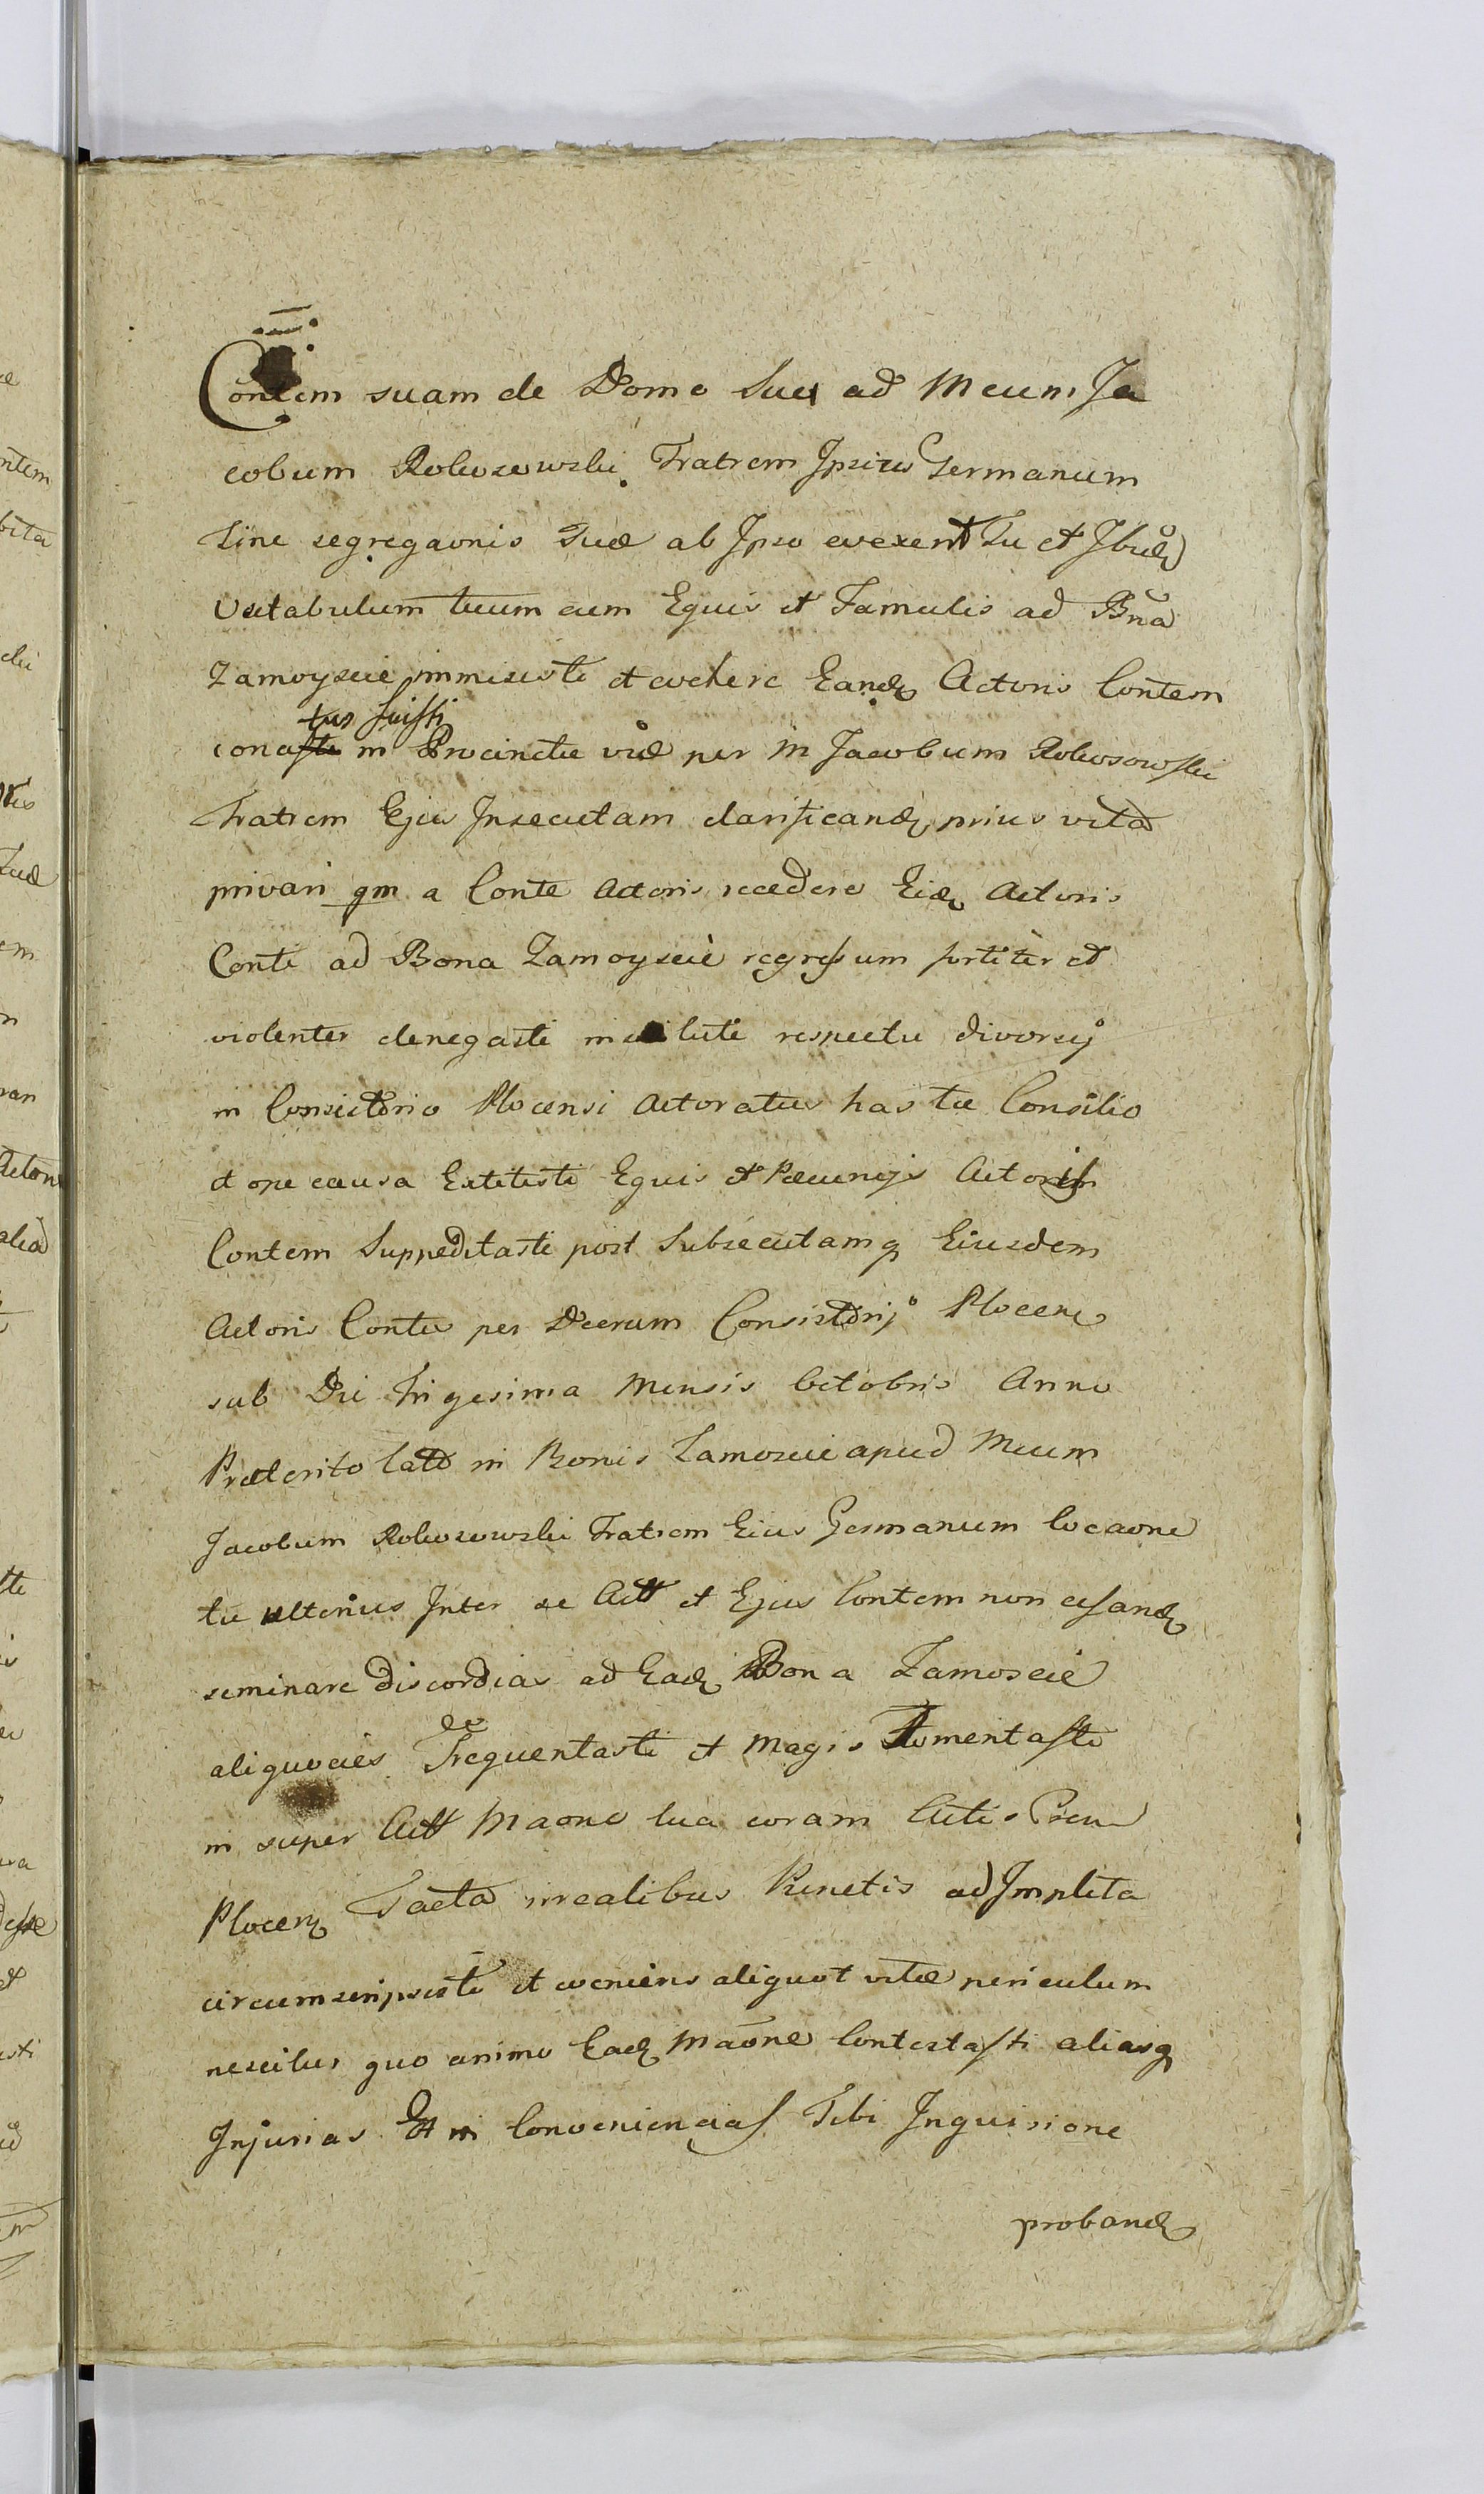 Contem suam de Domo Sua ad Mcum Ja
cobum Rokosowski Fratrem Ipsius Germanum
sine segregaonis suæ ab Ipso evexerit Tu et
Vectabulum tuum cum Equis et Famulis ad Bna
Zamoyscie immisisti et evehere Eandẽ Actoris Contem
tus fuisti
conasti in Procinctu viæ per M Jacobum Rokosowski
Fratrem Ejus Insecutam clarificandẽ prius vita
privari qm a Conte Actoris recedere Eidẽ Actoris
Conti ad Bona Zamoyscie regressum fortiter et
violenter denegasti in lite respectu divorcij
in Consistorio Plocensi Actoratus has tu Consilio
et ope causa Extitisti Equis et Pecunijs Actoris
Contem Suppeditasti post Subsecutamq Eiusdem
Actoris Contis per Decrum Consistorij Plocen
sub Die Trigesima Mensis Octobris Anno
Præterito lato in Bonis Zamoscie apud Mcum
Jacobum Rokosowski Fratrem Eius Germanum locaone
tu ulterius Inter se Actt et Ejus Contem non cessandẽ
seminare discordias ad Eadẽ Bona Zamoscie
aliquocies Frequentasti et magis Fomentasti
in super Actt Maone tua coram Actis
Plocen Facta in realibus Punctis ad Implita
circumscripsisti et eveniens aliquot vitæ periculum
nescitur quo animo Eadẽ Maone Contestasti aliasq
Injurias Et in Convenienciaſ Tibi Inquisione
probandẽ